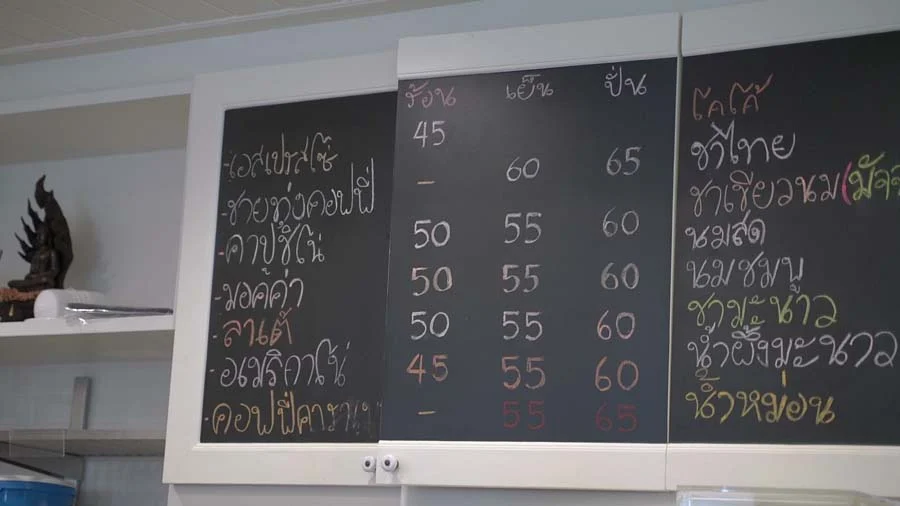 -เอสเปรสโซ่
-ชายทุ่งคอฟฟี่
-คาปูชิโน่
-มอคค่า
-ลาเต้
-อเมริกาโน่
-คอฟฟี่
ร้อน เย็น ปั่น
45
– 60 65
50 55 60
50 55 60
50 55 60
45 55 60
– 55 65
โคโค้
ชาไทย
ชาเขียวนม(มัจ
นมสด
นมชมพู
ชามะนาว
น้ำผึ้งมะนาว
น้ำหม่อน